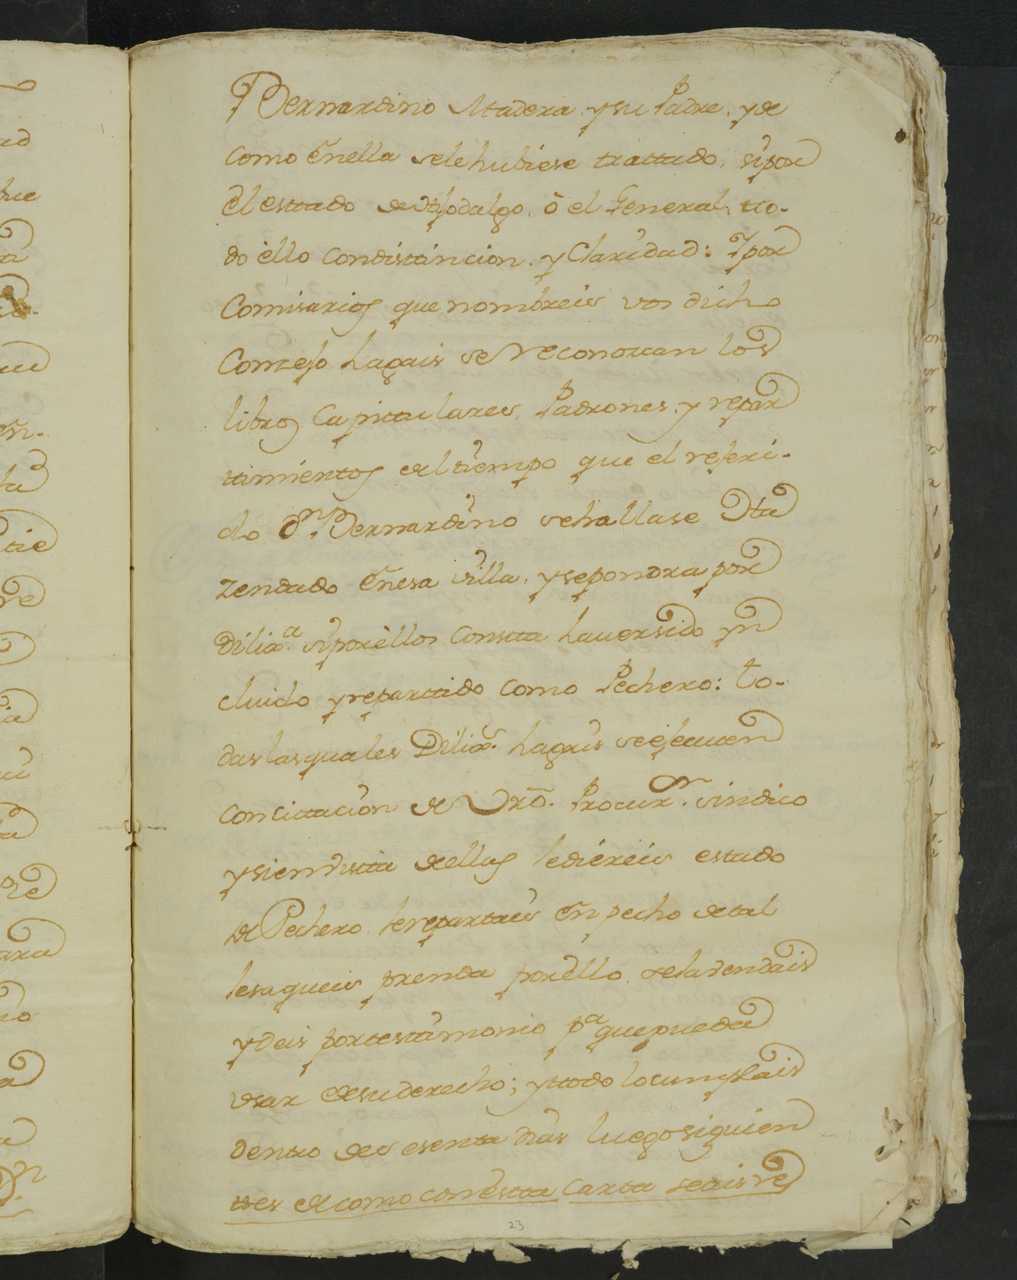 Bernardino Madera y su Padre, y de
como en ella se le hubiese trattado, si por
el estado de Hijodalgo, ò el General, tto-
do èllo con distáncion. y Claridad: Y por
Comisarios que nombreis vos dicho
Conzejo hagais se reconozcan los
libros Capitulares, Padrones, y repar
timientos del tiempo que el referi-
do Dn. Bernardino se hallase Ha
zendado en esa Villa, y se pondra por
Dilixa. si por èllos constta haver sido yn
cluido y reparttido como Pechero: To-
das las quales Dilixs. hagais se ejecuten
con cittacion de Vro. Procurr. sindico
y si en vista de ellas le diéreis estado
de Pechero le repartais en pecho de tal
le saqueis prenda por ello se la vendais
y deis por testimonio pa. que pueda
vsar de su derecho; y ttodo lo cumplais
dentro de sesentta dias luego siguien
ttes de como con estta Cartta seais re
23